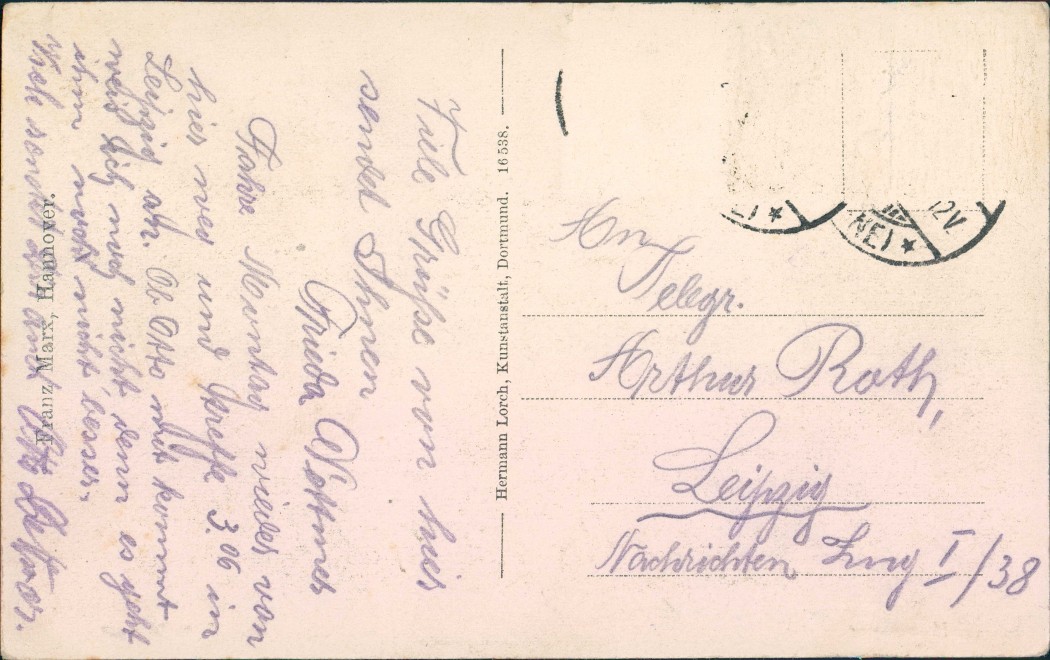 Viele Grüße von hier
sendet Ihnen
Frieda
Fahre Montag wieder von
hier weg und treffe 3.06 in
Leipzig ein. Ob Otto mit kommt
weiß ich noch nicht, denn es geht
ihm noch nicht besser.
Viele
Franz Marx, Hannover.
Hermann Lorch, Kunstanstalt, Dortmund. 16538.
NE) * 12V
Hrn
Telegr.
Arthur Roth,
Leipzig
Nachrichten I/38